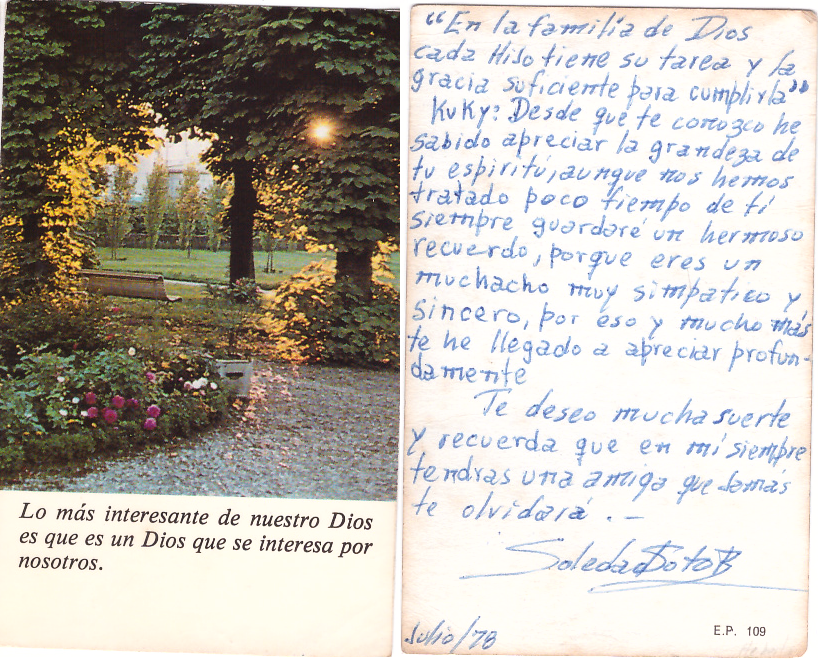 Lo más interesante de nuestro Dios
es que es un Dios que se interesa por
nosotros.
"En la familia de Dios
cada Hijo tiene su tarea y la
gracia suficiente para cumplirla"
Kuky: Desde que te conozco he
sabido apreciar la grandeza de
tu espiritú, aunque nos hemos
tratado poco tiempo de tí
siempre guardaré un hermoso
recuerdo, porque eres un
muchacho muy simpatico y
sincero, por eso y mucho más
te he llegado a apreciar profun-
damente
Te deseo mucha suerte
y recuerda que en mí siempre
tendras una amiga que Jamás
te olvidará . _
Soledad Soto B
E.P. 109
Julio/78